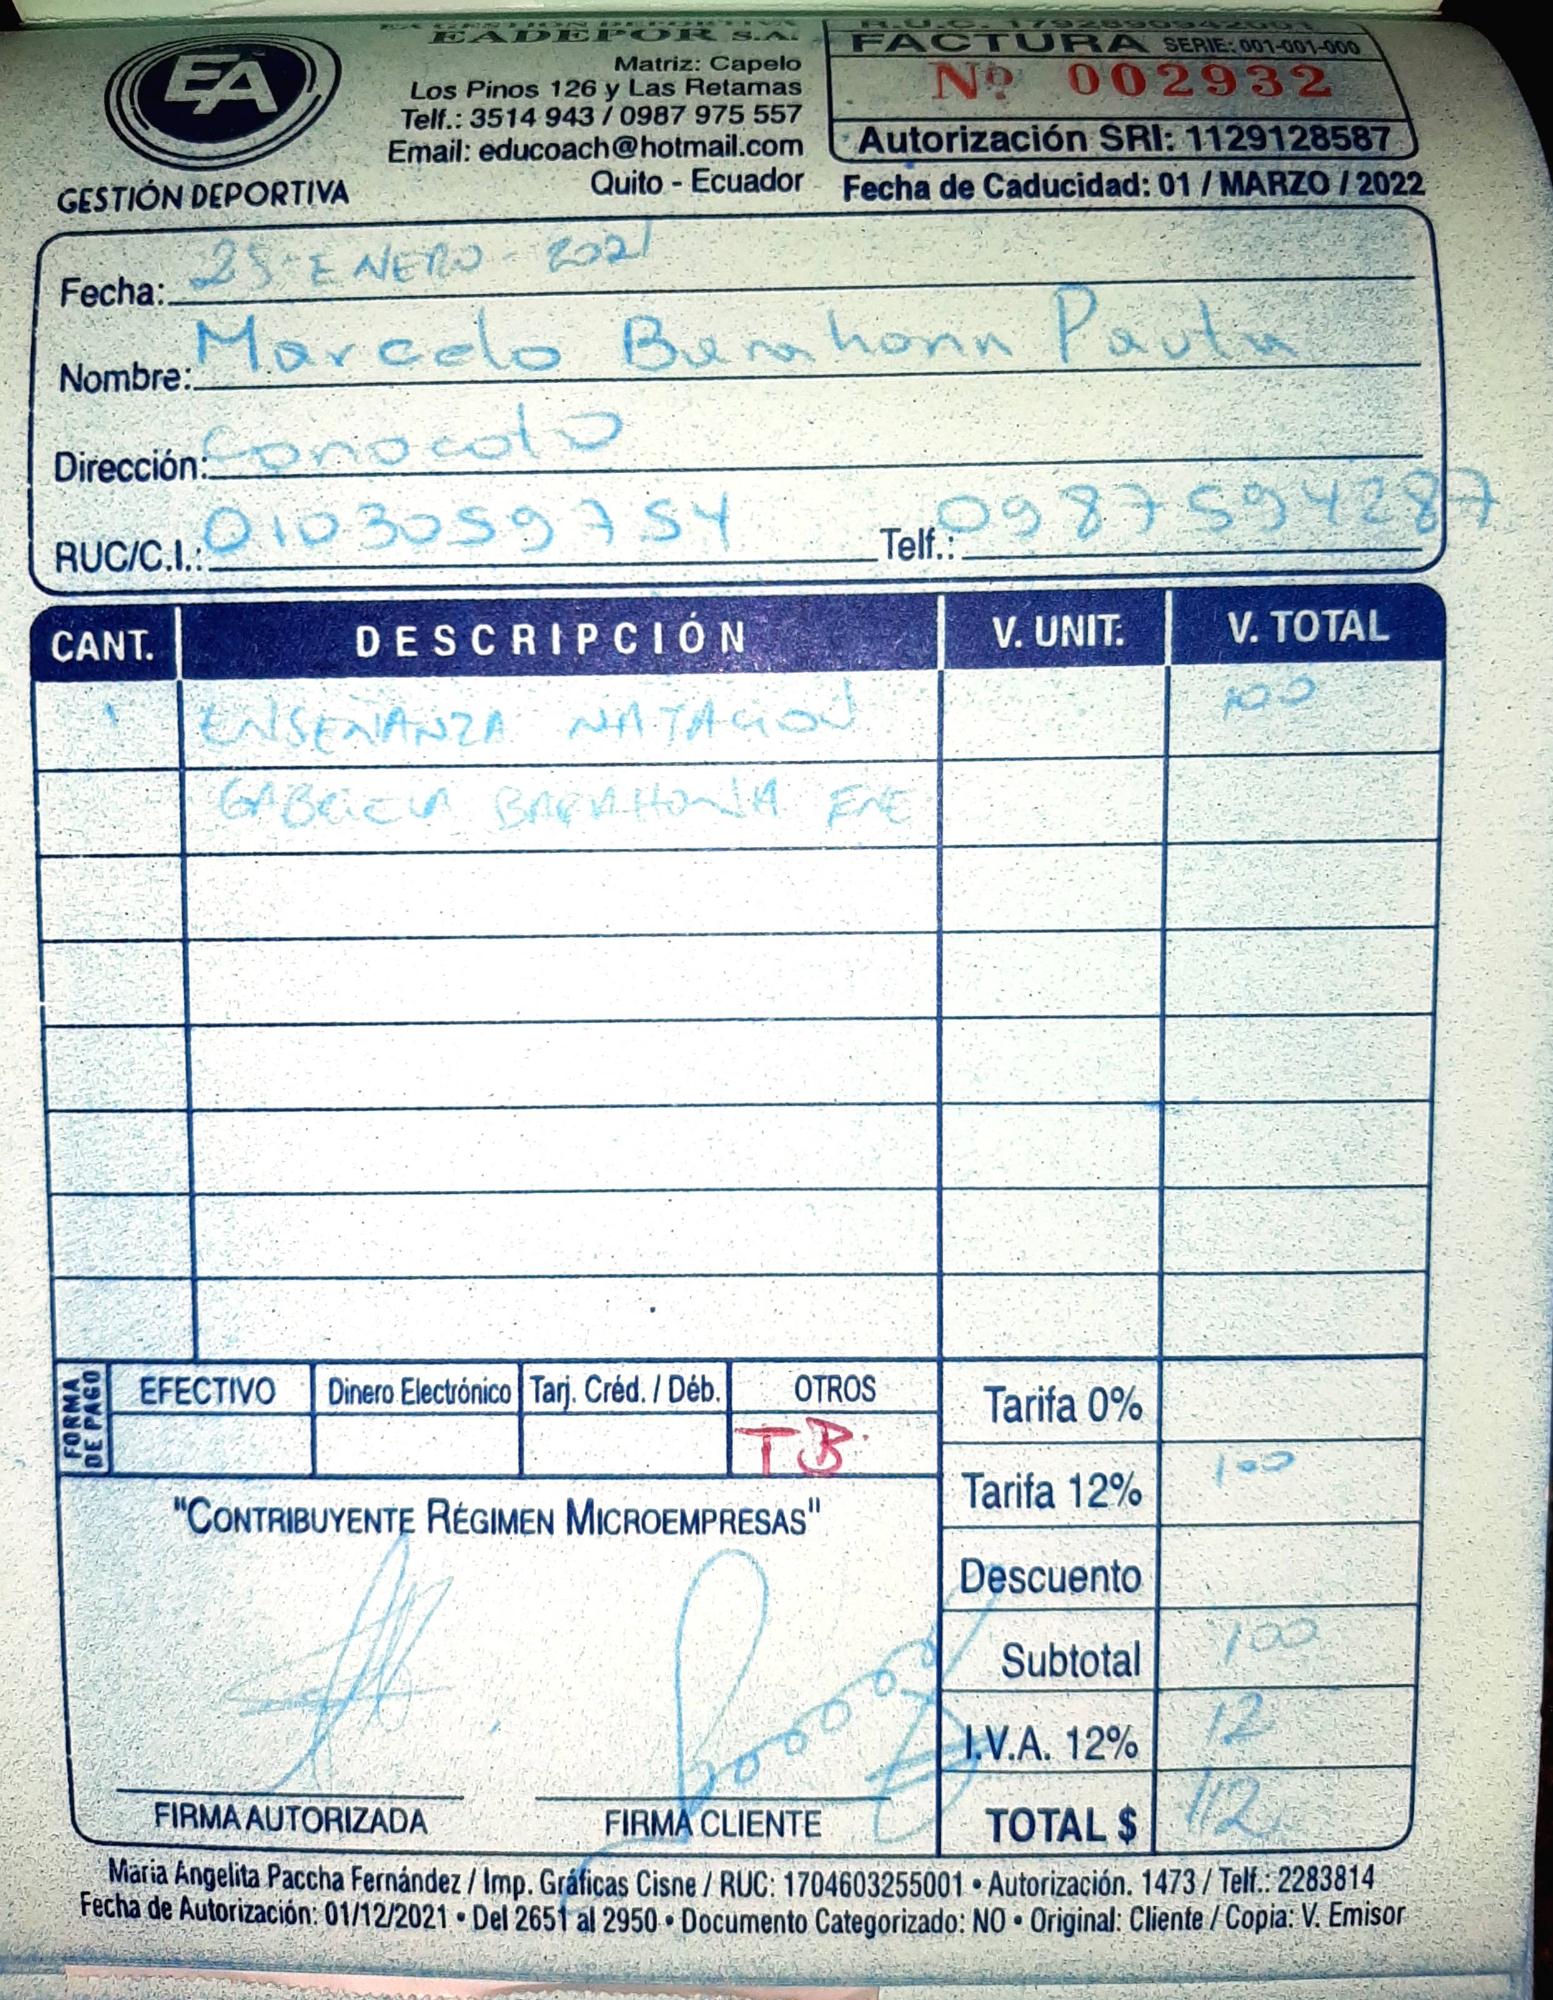 EA GESTIÓN DEPORTIVA
EADEPOR S.A.
Matriz: Capelo
Los Pinos 126 y Las Retamas
Telf.: 3514 943 / 0987 975 557
Email: educoach@hotmail.com
Quito - Ecuador
EA
GESTIÓN DEPORTIVA
R.U.C. 1792890942001
FACTURA SERIE: 001-001-000
Nº 002932
Autorización SRI: 1129128587
Fecha de Caducidad: 01 / MARZO / 2022
Fecha: 25-ENERO-2021
Nombre: Marcelo Barahona Pauta
Dirección: Conocoto
RUC/C.I.: 0103059754 Telf.: 0987594287
CANT. DESCRIPCIÓN V. UNIT. V. TOTAL
1 ENSEÑANZA NATACION 100
GABRIELA BARAHONA ENE
FORMA DE PAGO
EFECTIVO Dinero Electrónico Tarj. Créd. / Déb. OTROS
TB.
Tarifa 0%
Tarifa 12% 100
Descuento
Subtotal 100
I.V.A. 12% 12
TOTAL $ 112
"CONTRIBUYENTE RÉGIMEN MICROEMPRESAS"
FIRMA AUTORIZADA FIRMA CLIENTE
Maria Angelita Paccha Fernández / Imp. Gráficas Cisne / RUC: 1704603255001 • Autorización. 1473 / Telf.: 2283814
Fecha de Autorización: 01/12/2021 • Del 2651 al 2950 • Documento Categorizado: NO • Original: Cliente / Copia: V. Emisor